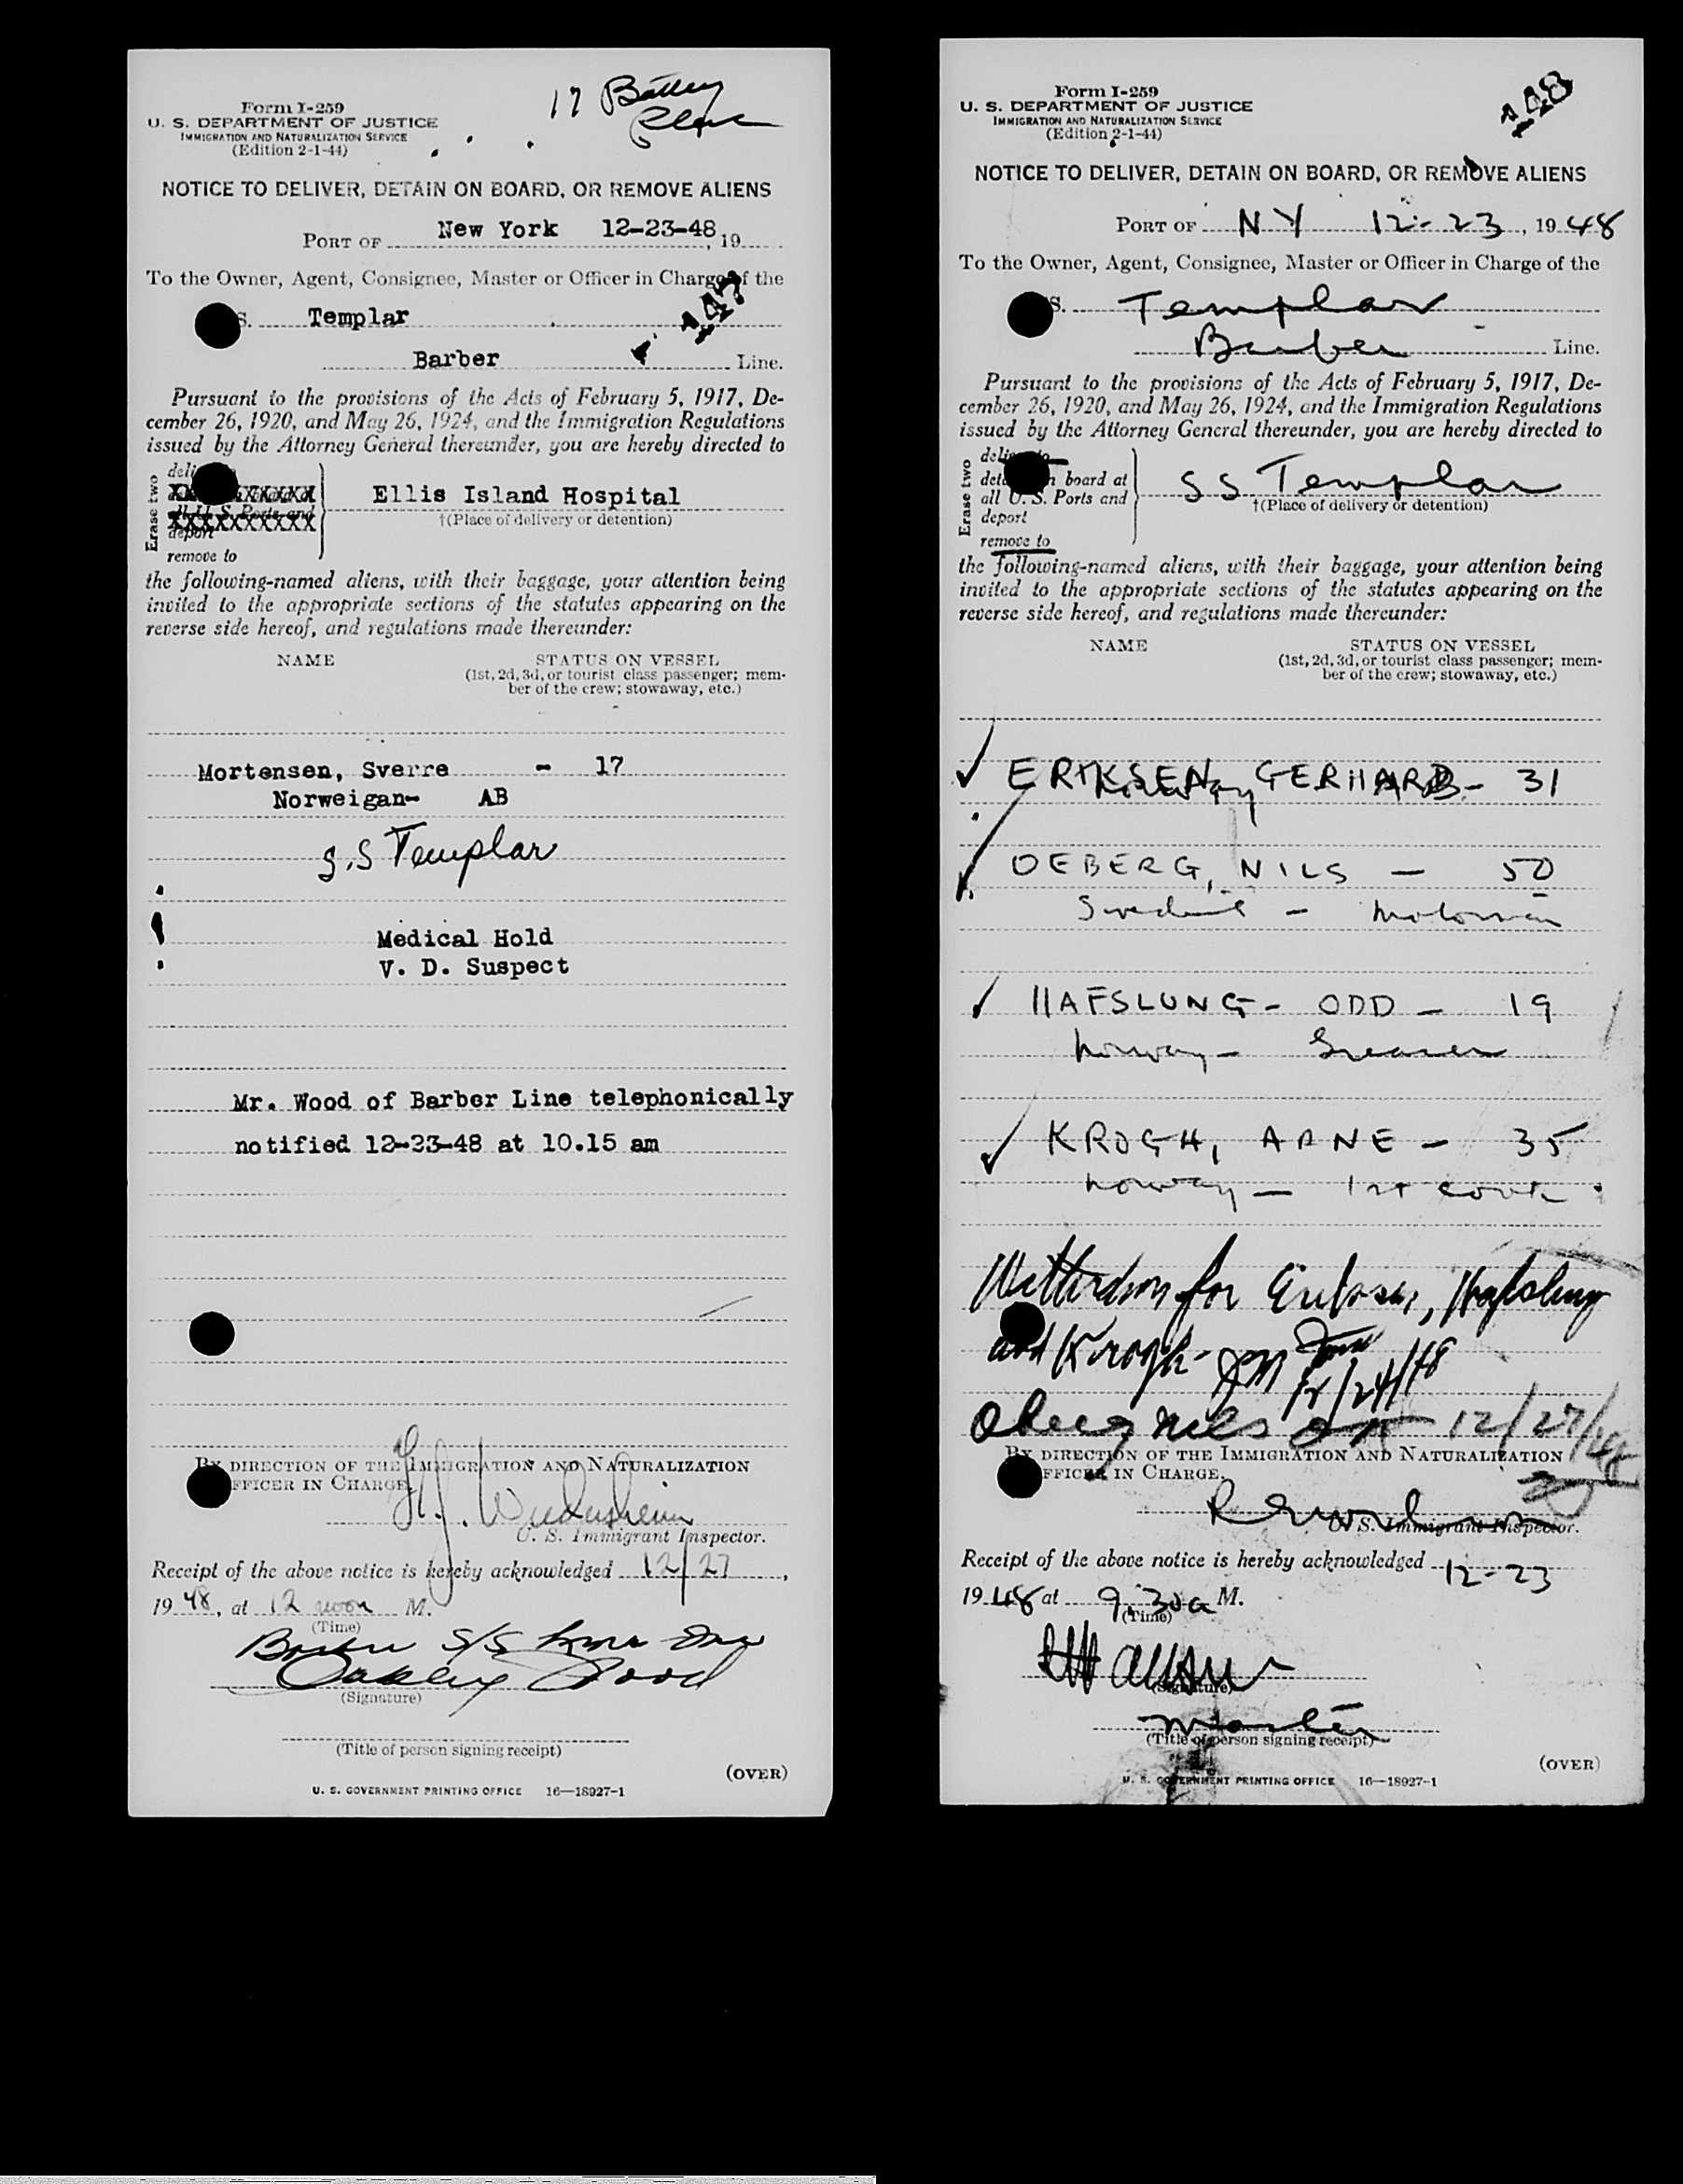 17 Battery
Place
Form I-259
U. S. DEPARTMENT OF JUSTICE
IMMIGRATION AND NATURALIZATION SERVICE
(Edition 2-1-44)
NOTICE TO DELIVER, DETAIN ON BOARD, OR REMOVE ALIENS
PORT OF New York 12-23-48, 19
To the Owner, Agent, Consignee, Master or Officer in Charge of the
147
S. Templar
Barber Line.
Pursuant to the provisions of the Acts of February 5, 1917, De-
cember 26, 1920, and May 26, 1924, and the Immigration Regulations
issued by the Attorney General thereunder, you are hereby directed to
Erase two
deport
remove to
Ellis Island Hospital
†(Place of delivery or detention)
the following-named aliens, with their baggage, your attention being
invited to the appropriate sections of the statutes appearing on the
reverse side hereof, and regulations made thereunder:
NAME STATUS ON VESSEL
(1st, 2d, 3d, or tourist class passenger; mem-
ber of the crew; stowaway, etc.)
Mortensen, Sverre - 17
Norweigan- AB
S.S Templar
Medical Hold
V. D. Suspect
Mr. Wood of Barber Line telephonically
notified 12-23-48 at 10.15 am
BY DIRECTION OF THE IMMIGRATION AND NATURALIZATION
OFFICER IN CHARGE.
U. S. Immigrant Inspector.
Receipt of the above notice is hereby acknowledged 12/27,
19 48, at 12 noon M.
(Time)
Barber S/S
Oakley Wood
(Signature)
(Title of person signing receipt)
(OVER)
U. S. GOVERNMENT PRINTING OFFICE 16—18927-1
148
Form I-259
U. S. DEPARTMENT OF JUSTICE
IMMIGRATION AND NATURALIZATION SERVICE
(Edition 2-1-44)
NOTICE TO DELIVER, DETAIN ON BOARD, OR REMOVE ALIENS
PORT OF NY 12-23, 19 48
To the Owner, Agent, Consignee, Master or Officer in Charge of the
S. Templar
Barber Line.
Pursuant to the provisions of the Acts of February 5, 1917, De-
cember 26, 1920, and May 26, 1924, and the Immigration Regulations
issued by the Attorney General thereunder, you are hereby directed to
Erase two
board at
all U. S. Ports and
deport
remove to
SS Templar
†(Place of delivery or detention)
the following-named aliens, with their baggage, your attention being
invited to the appropriate sections of the statutes appearing on the
reverse side hereof, and regulations made thereunder:
NAME STATUS ON VESSEL
(1st, 2d, 3d, or tourist class passenger; mem-
ber of the crew; stowaway, etc.)
ERIKSEN, GERHARD - 31
OEBERG, NILS — 50
Swedish - Motorman
HAFSLUNG - ODD - 19
Norway - Greaser
KROGH, ARNE - 35
Norway — 1st cook
Withdrawn for Eriksen, Hafslung
and Krogh - 12/24/48
Oberg Nils 12/27/48
BY DIRECTION OF THE IMMIGRATION AND NATURALIZATION
OFFICER IN CHARGE.
U. S. Immigrant Inspector.
Receipt of the above notice is hereby acknowledged 12-23
19 48 at 9.30a M.
(Time)
(Signature)
Master
(Title of person signing receipt)
(OVER)
U. S. GOVERNMENT PRINTING OFFICE 16—18927-1